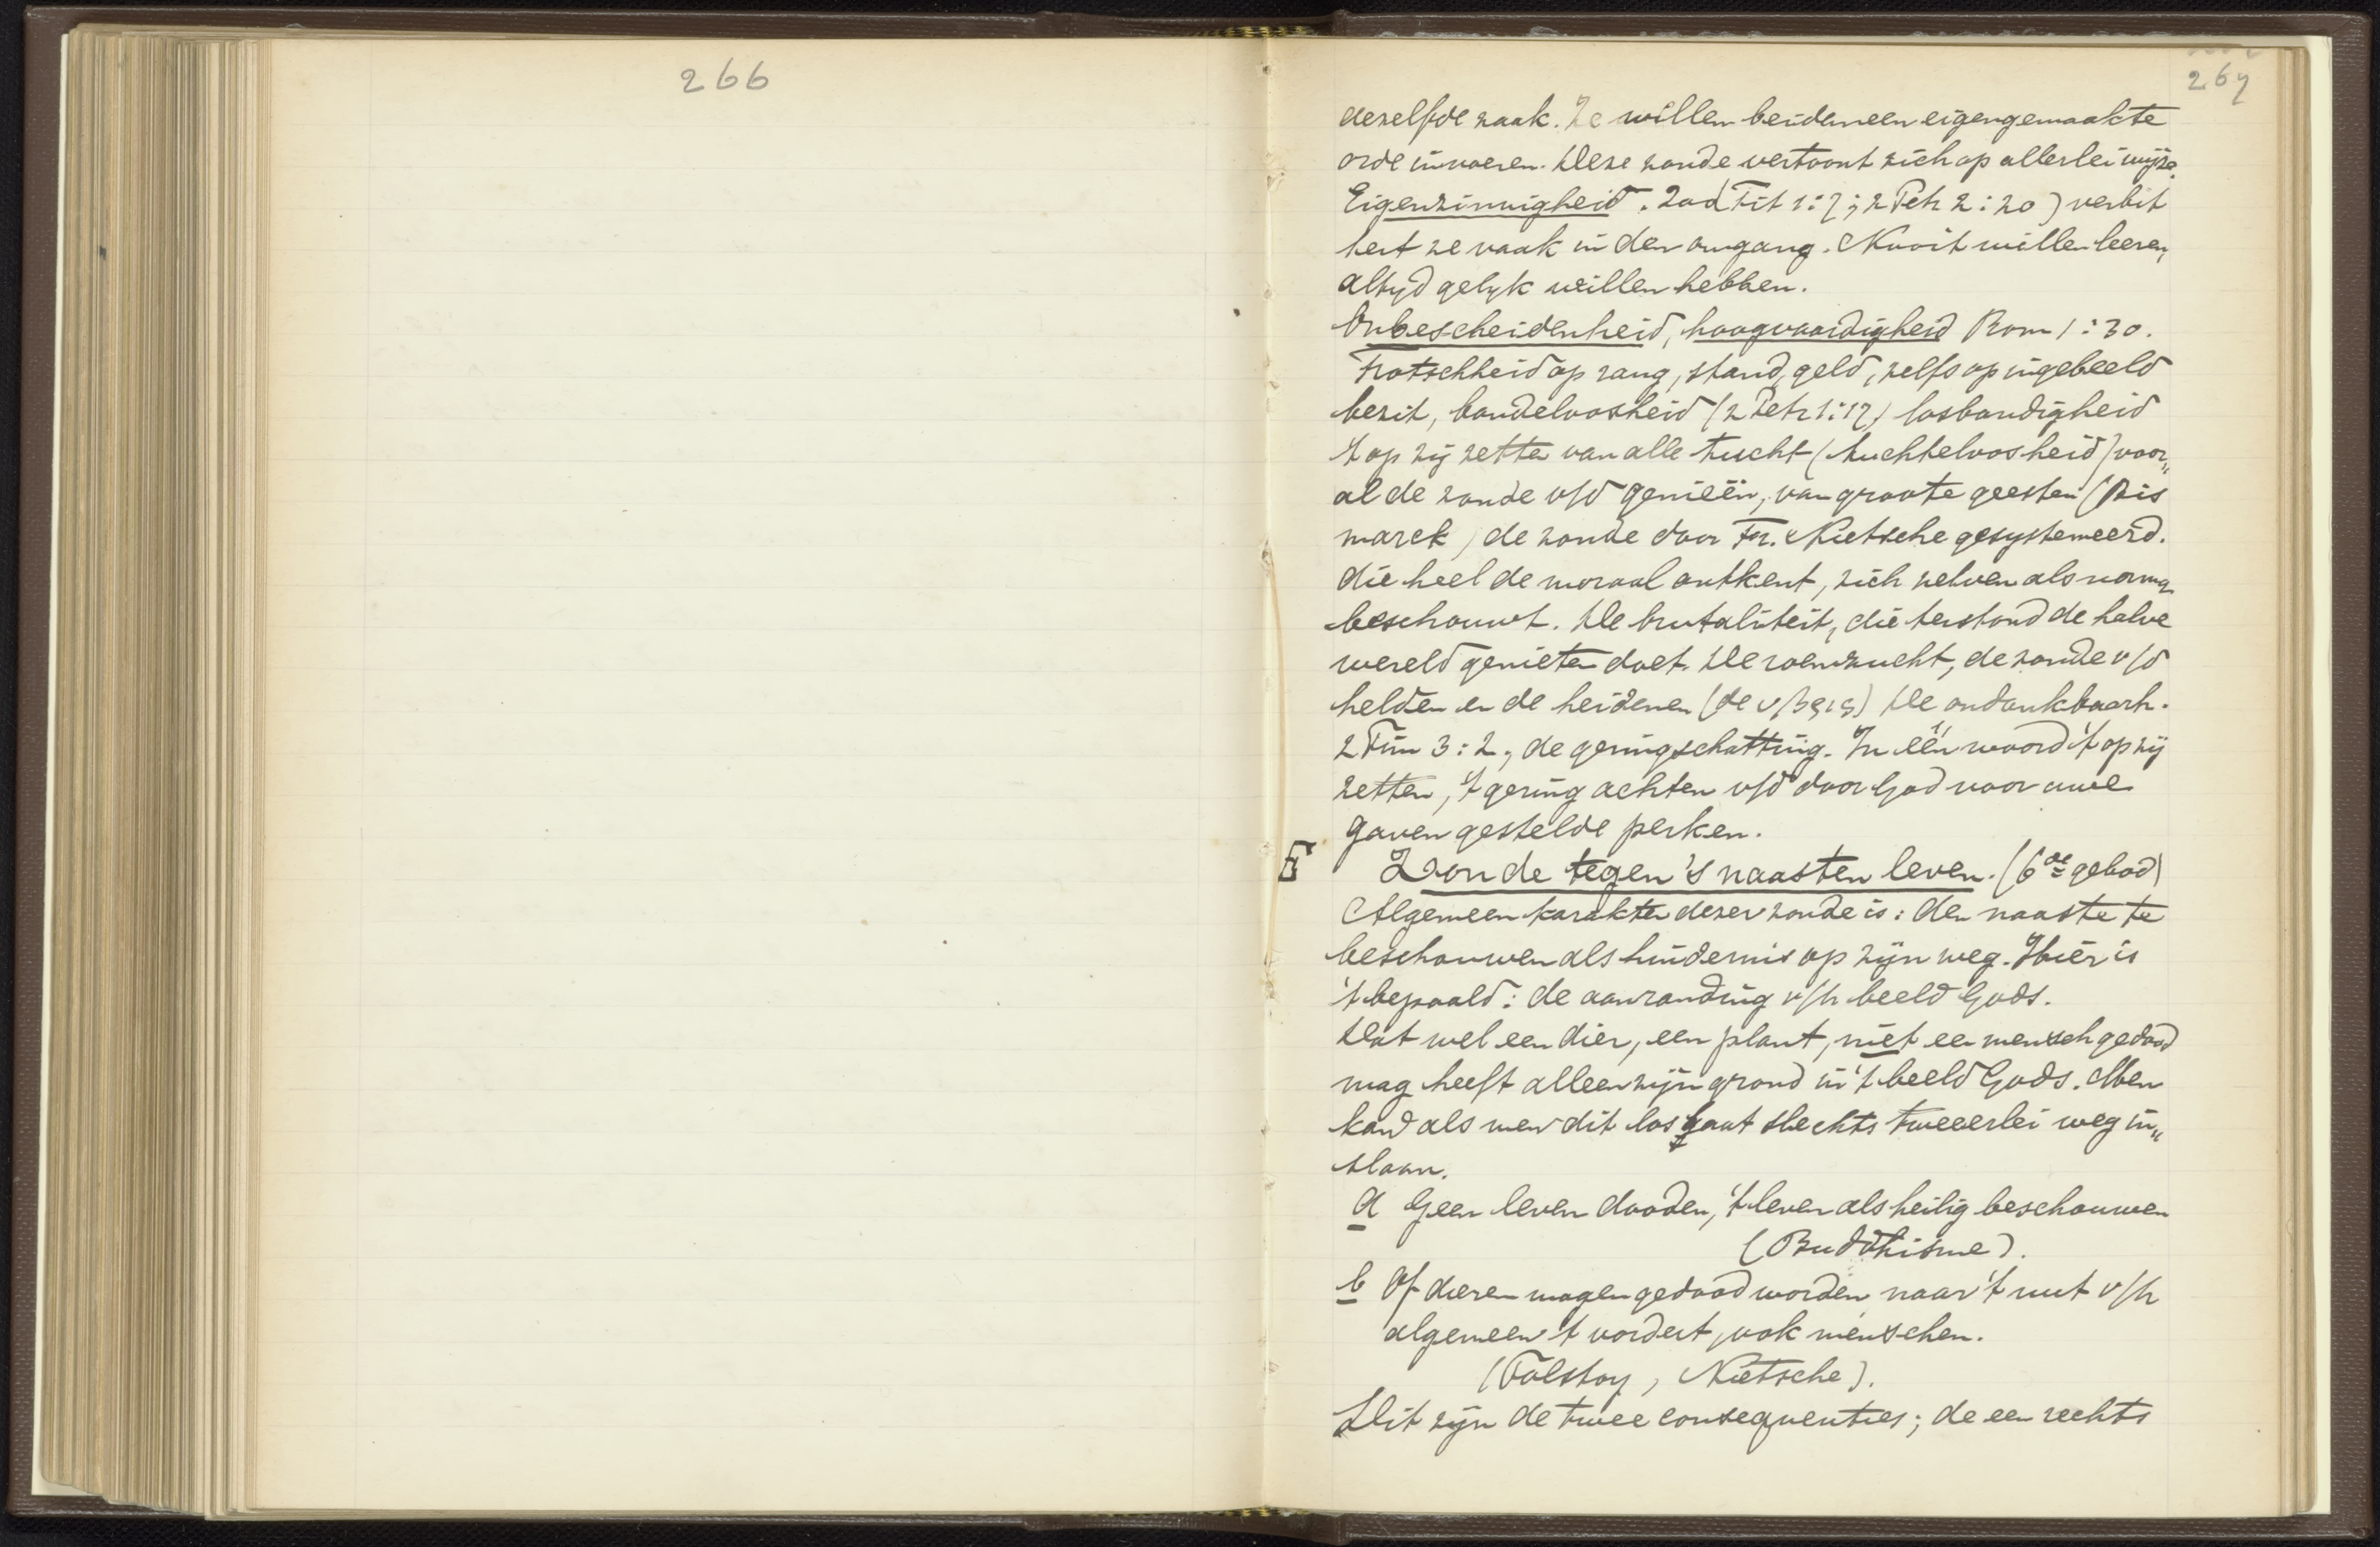 266
267
dezelfde zaak. Ze willen beiden een eigengemaakte
orde invoeren. Deze zonde vertoont zich op allerlei wijze.
Eigenzinnigheid. Zoo (Tit 1:7; 2 Petr 2:20) verbit
tert ze vaak in den omgang. Nooit willen leeren,
altyd gelyk willen hebben.
Onbescheidenheid, hoogvaardigheid Rom 1:30.
Trotschheid op rang, stand, geld, zelfs op ingebeeld
bezit, bandeloosheid (2 Petr 1:17) losbandigheid
't op zij zetten van alle tucht (tuchteloosheid) voor„
al de zonde v/d genieën, van groote geesten (Bis
marck) de zonde door Fr. Nietsche gesystemeerd.
die heel de moraal ontkent, zich zelven als norma
beschouwt. De brutaliteit, die terstond de halve
wereld genieten doet. De roemzucht, de zonde v/d
helden en de heidenen (de υβρις) De ondankbaarh.
2 Tim 3:2, de geringschatting. In één woord 't op zij
zetten, 't gering achten v/d door God voor uwe
gaven gestelde perken.
E Zonde tegen 's naasten leven. (6de gebod)
Algemeen karakter dezer zonde is: den naaste te
beschouwen als hindernis op zijn weg. Hier is
't bepaald: de aanranding v/h beeld Gods.
Dat wel een dier, een plant, niet een mensch gedood
mag heeft alleen zijn grond in 't beeld Gods. Men
kan als men dit los laat slechts tweeerlei weg in„
slaan.
a Geen leven dooden, 't leven als heilig beschouwen
(Buddhisme).
b Of dieren mogen gedood worden naar 't nut v/h
algemeen 't vordert, ook menschen.
(Tolstoy, Nietsche).
Dit zijn de twee consequenties; de een rechts